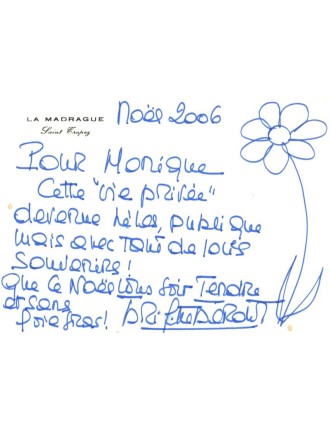 LA MADRAGUE
Saint Tropez
Noël 2006
Pour Monique
Cette "vie privée"
devenue hélas, publique
mais avec tant de jolis
souvenirs !
Que ce Noël vous soit Tendre
et sans
foie gras ! Brigitte Bardot